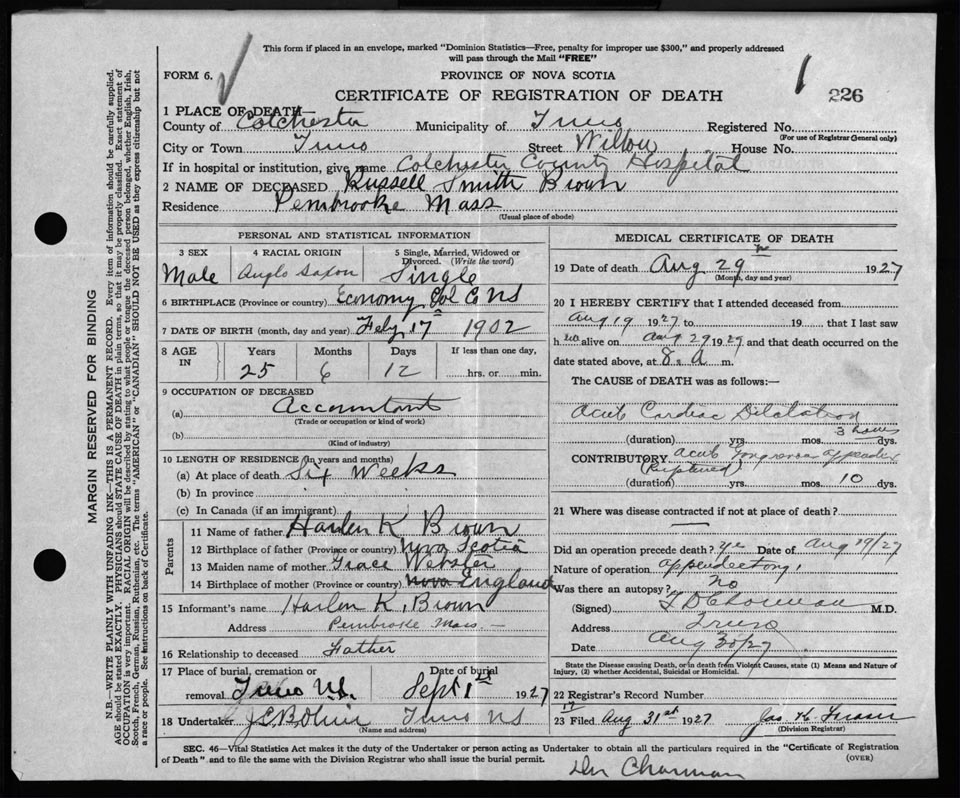 This form if placed in an envelope, marked "Dominion Statistics—Free, penalty for improper use $300," and properly addressed
will pass through the Mail "FREE"
FORM 6.
PROVINCE OF NOVA SCOTIA
CERTIFICATE OF REGISTRATION OF DEATH
226
1 PLACE OF DEATH
County of Colchester Municipality of Truro Registered No.
(For use of Registrar General only)
City or Town Truro Street Willow House No.
If in hospital or institution, give name Colchester County Hospital
2 NAME OF DECEASED Russell Smith Brown
Residence Pembrooke Mass
(Usual place of abode)
PERSONAL AND STATISTICAL INFORMATION
3 SEX 4 RACIAL ORIGIN 5 Single, Married, Widowed or Divorced. (Write the word)
Male Anglo Saxon Single
6 BIRTHPLACE (Province or country) Economy Col Co NS
7 DATE OF BIRTH (month, day and year) Feby 17 1902
8 AGE IN Years Months Days If less than one day,
25 6 12 hrs. or min.
9 OCCUPATION OF DECEASED
(a) Accountant
(Trade or occupation or kind of work)
(b)
(Kind of industry)
10 LENGTH OF RESIDENCE (In years and months)
(a) At place of death Six Weeks
(b) In province
(c) In Canada (if an immigrant)
Parents
11 Name of father Harlen K Brown
12 Birthplace of father (Province or country) Nova Scotia
13 Maiden name of mother Grace Webster
14 Birthplace of mother (Province or country) Nova England
15 Informant's name Harlen K. Brown
Address Pembroke Mass.
16 Relationship to deceased Father
17 Place of burial, cremation or removal Truro N.S. Date of burial Sept 1st 1927
18 Undertaker Truro NS
(Name and address)
MEDICAL CERTIFICATE OF DEATH
19 Date of death Aug 29 1927
(Month, day and year)
20 I HEREBY CERTIFY that I attended deceased from
Aug 19 1927 to 19 that I last saw
h im alive on Aug 29 1927 and that death occurred on the
date stated above, at 8 A m.
The CAUSE of DEATH was as follows:—
Acute Cardiac Dilatation
3 hours
(duration) yrs. mos. dys.
CONTRIBUTORY Acute Gangrenous Appendix
(Ruptured)
(duration) yrs. mos. 10 dys.
21 Where was disease contracted if not at place of death?
Did an operation precede death? Yes Date of Aug 19/27
Nature of operation Appendectomy
Was there an autopsy? No
(Signed) Charman M.D.
Address Truro
Date Aug 30/27
State the Disease causing Death, or in death from Violent Causes, state (1) Means and Nature of
Injury, (2) whether Accidental, Suicidal or Homicidal.
22 Registrar's Record Number 17
23 Filed Aug 31st 1927 Jas. H. Fraser
(Division Registrar)
SEC. 46—Vital Statistics Act makes it the duty of the Undertaker or person acting as Undertaker to obtain all the particulars required in the "Certificate of Registration
of Death" and to file the same with the Division Registrar who shall issue the burial permit.
(OVER)
Dr Charman
MARGIN RESERVED FOR BINDING
N.B.—WRITE PLAINLY WITH UNFADING INK—THIS IS A PERMANENT RECORD. Every item of information should be carefully supplied.
AGE should be stated EXACTLY. PHYSICIANS should STATE CAUSE OF DEATH in plain terms, so that it may be properly classified. Exact statement of
OCCUPATION is very important. RACIAL ORIGIN will be described by stating to what people or tongue the deceased person belonged, whether English, Irish,
Scotch, French, German, Russian, Ruthenian, etc. The terms "AMERICAN" or "CANADIAN" SHOULD NOT BE USED as they express citizenship but not
a race or people. See instructions on back of Certificate.